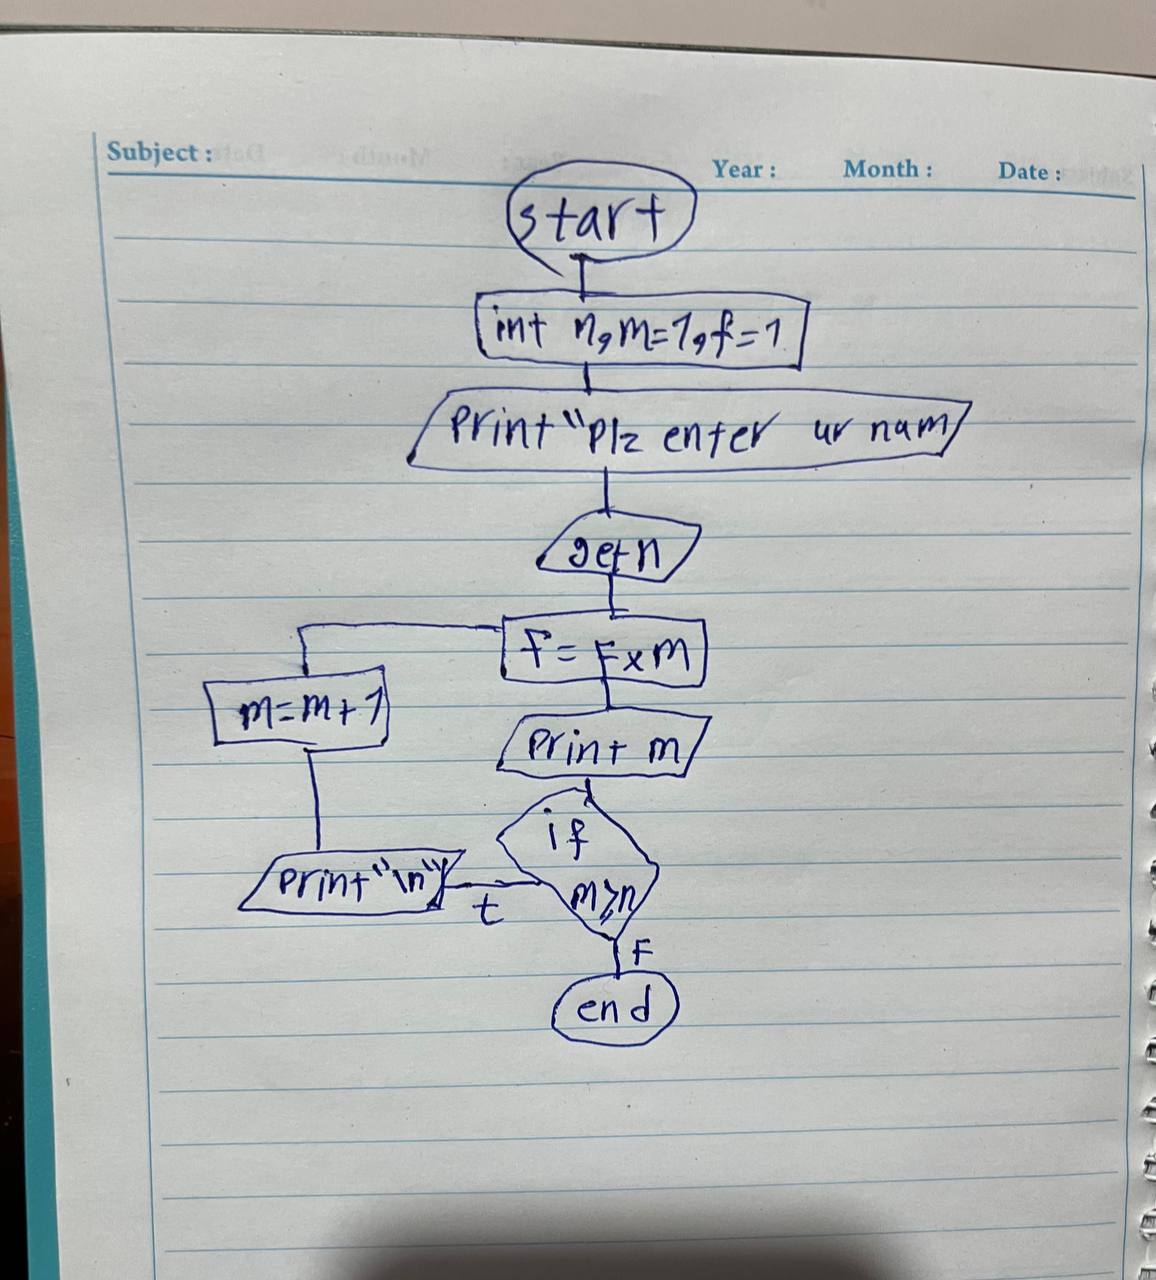 Subject :
Year : Month : Date :
start
int n,m=1,f=1
print "plz enter ur nam
get n
f = F x m
m=m+1
print m
if
m>n
print "\n"
t
F
end